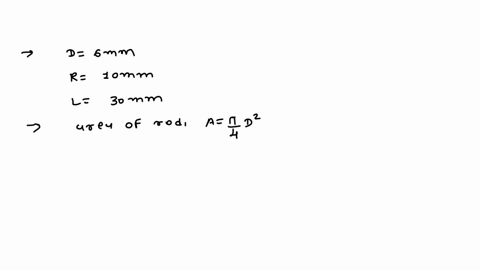 → D= 6mm
R= 10mm
L= 30mm
→ area of rod, A= π/4 D²